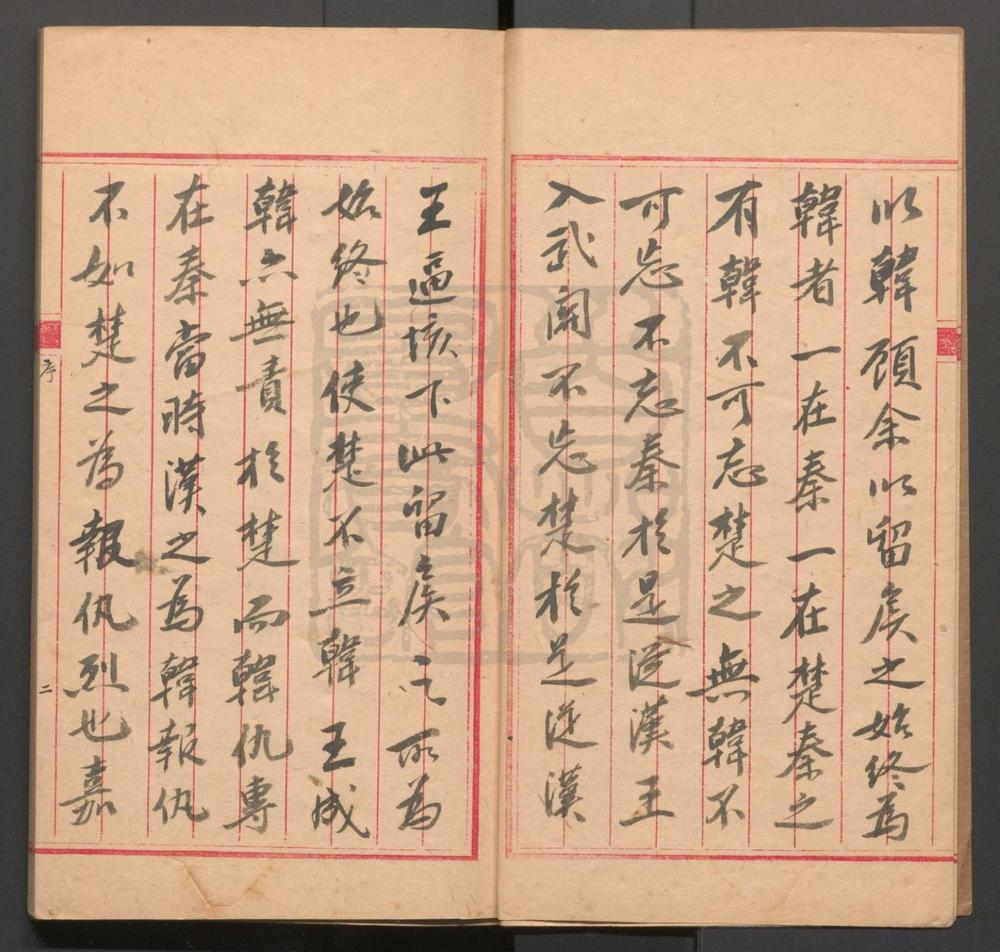 以韓顧余以留矦之始終為
韓者一在秦一在楚秦之
有韓不可忘楚之無韓不
可忘不忘秦於是從漢王
入武関不忘楚於是從漢
王逼垓下此留矦之所為
始終也使楚不立韓王成
韓亦無責於楚而韓仇專
在秦當時漢之為韓報仇
不如楚之為報仇烈也嘉
序
二